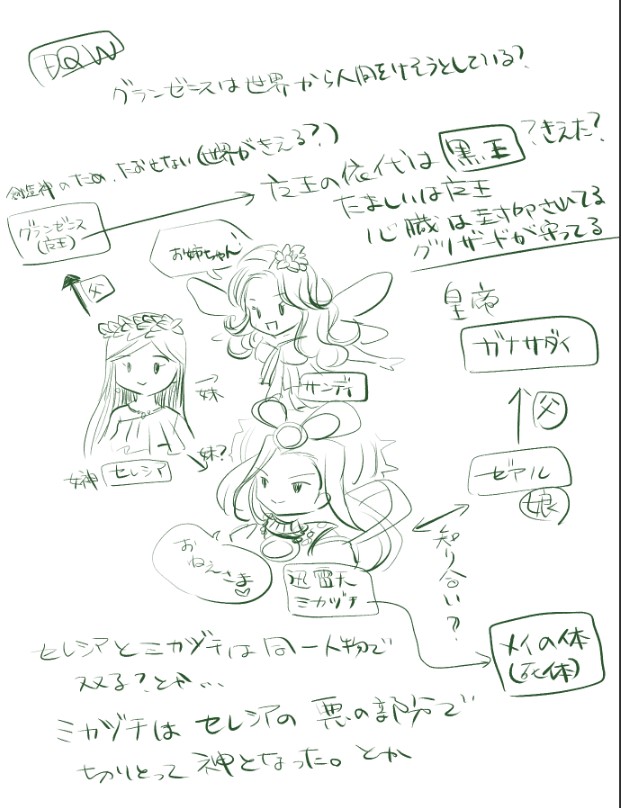 DQW
グランゼニスは世界から人間をけそうとしている?
創造神のため、たおせない(世界がきえる?)
グランゼニス
(夜王)
夜王の依代は 黒王 ?きえた?
たましいは夜王
心臓は封印されてる
グリザードが守ってる
お姉ちゃん
父
妹
サンディ
女神 セレシア
妹?
皇帝
ガナサダイ
父
ゼアル
娘
おねえさま♡
迅雷天
ミカヅチ
知り合い?
メイの体
(死体)
セレシアとミカヅチは同一人物で
ススる?とか…
ミカヅチはセレシアの悪の部分で
切りとって神となった。とか